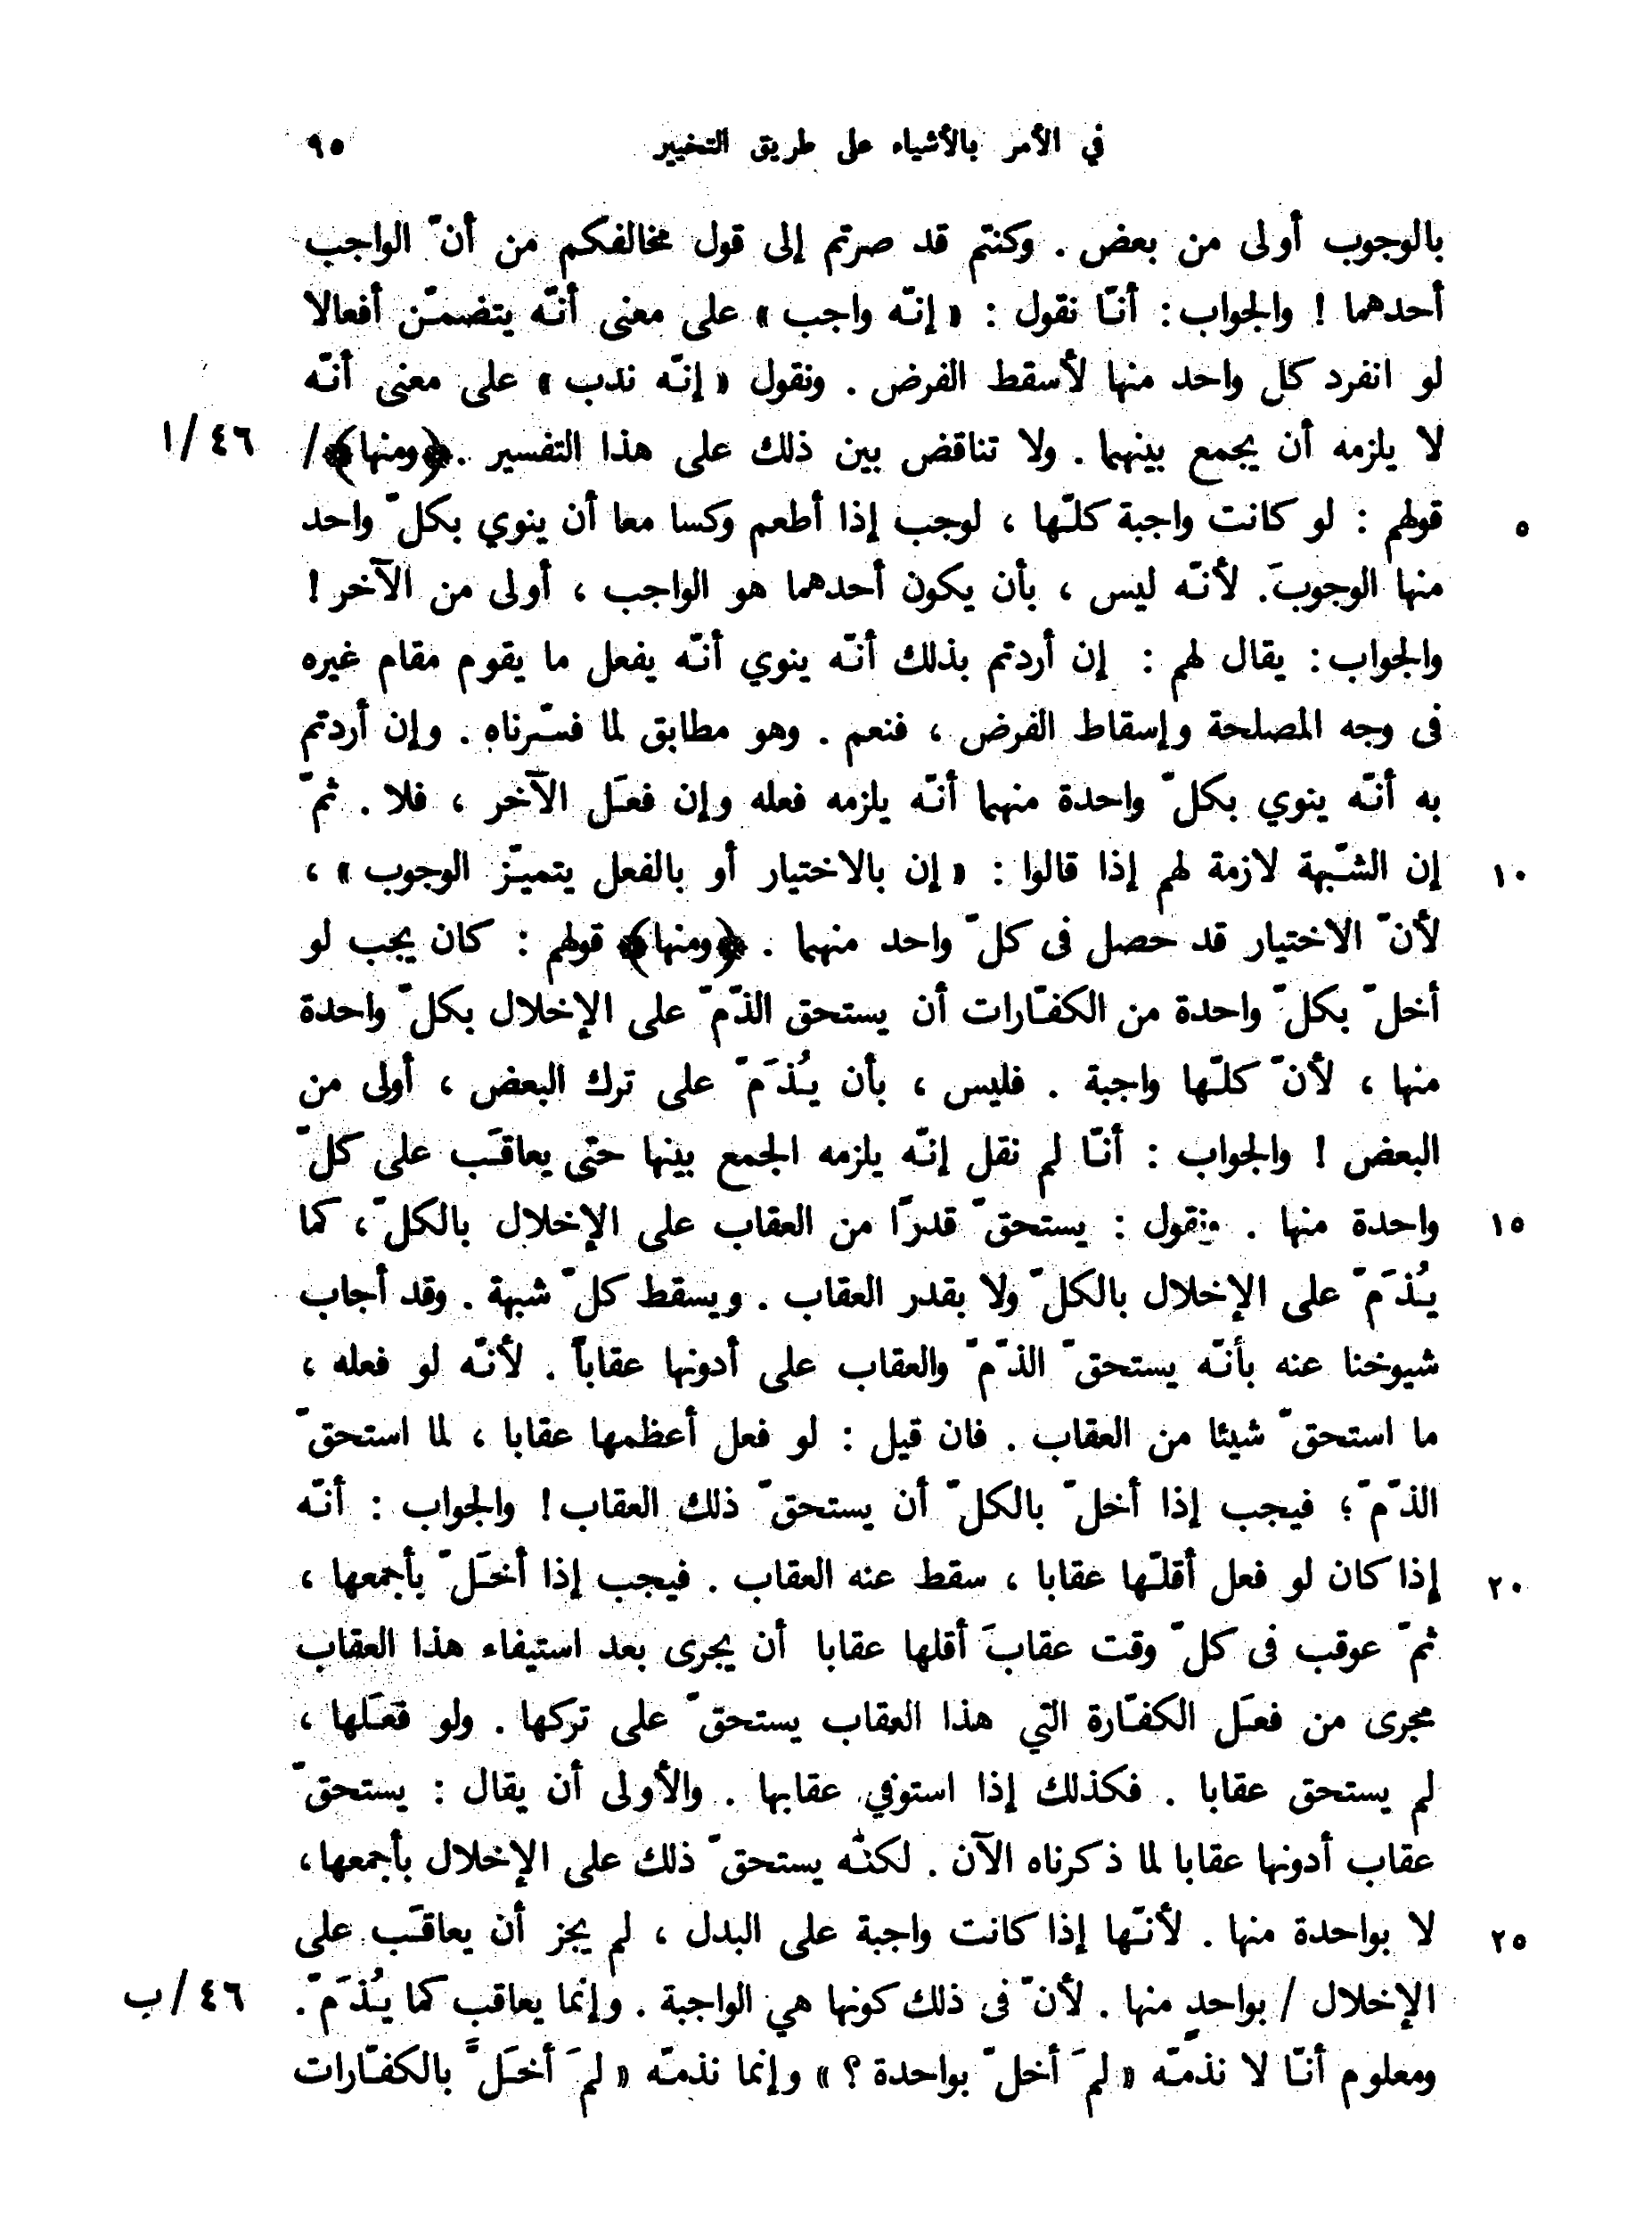 في الأمر بالأشياء على طريق التخيير ٩٥
بالوجوب أولى من بعض . وكنتم قد صرتم إلى قول مخالفكم من أنّ الواجب
أحدهما ! والجواب : أنّا نقول : « إنّه واجب » على معنى أنّه يتضمّن أفعالا
لو انفرد كل واحد منها لأسقط الفرض . ونقول « إنّه ندب » على معنى أنّه
لا يلزمه أن يجمع بينهما . ولا تناقض بين ذلك على هذا التفسير . ﴿ومنها﴾/ ٤٦/ا
قولهم : لو كانت واجبة كلّها ، لوجب إذا أطعم وكسا معا أن ينوي بكلّ واحد ٥
منها الوجوبَ. لأنّه ليس ، بأن يكون أحدهما هو الواجب ، أولى من الآخر !
والجواب : يقال لهم : إن أردتم بذلك أنّه ينوي أنّه يفعل ما يقوم مقام غيره
فى وجه المصلحة وإسقاط الفرض ، فنعم . وهو مطابق لما فسّرناه . وإن أردتم
به أنّه ينوي بكلّ واحدة منهما أنّه يلزمه فعله وإن فعَل الآخر ، فلا . ثمّ
إن الشّبهة لازمة لهم إذا قالوا : « إن بالاختيار أو بالفعل يتميّز الوجوب » ، ١٠
لأنّ الاختيار قد حصل فى كلّ واحد منهما . ﴿ومنها﴾ قولهم : كان يجب لو
أخلّ بكلّ واحدة من الكفّارات أن يستحق الذّمّ على الإخلال بكلّ واحدة
منها ، لأنّ كلّها واجبة . فليس ، بأن يُذَمّ على ترك البعض ، أولى من
البعض ! والجواب : أنّا لم نقل إنّه يلزمه الجمع بينها حتّى يعاقَب على كلّ
واحدة منها . ونقول : يستحقّ قدرًا من العقاب على الإخلال بالكلّ ، كما ١٥
يُذَمّ على الإخلال بالكلّ ولا بقدر العقاب . ويسقط كلّ شبهة . وقد أجاب
شيوخنا عنه بأنّه يستحقّ الذّمّ والعقاب على أدونها عقاباً . لأنّه لو فعله ،
ما استحقّ شيئا من العقاب . فان قيل : لو فعل أعظمها عقابا ، لما استحقّ
الذّمّ ؛ فيجب إذا أخلّ بالكلّ أن يستحقّ ذلك العقاب ! والجواب : أنّه
إذا كان لو فعل أقلّها عقابا ، سقط عنه العقاب . فيجب إذا أخَلّ بأجمعها ، ٢٠
ثمّ عوقب فى كلّ وقت عقابَ أقلها عقابا أن يجرى بعد استيفاء هذا العقاب
مجرى من فعَل الكفّارة التي هذا العقاب يستحقّ على تركها . ولو فعَلها ،
لم يستحق عقابا . فكذلك إذا استوفي عقابها . والأولى أن يقال : يستحقّ
عقاب أدونها عقابا لما ذكرناه الآن . لكنّه يستحقّ ذلك على الإخلال بأجمعها ،
لا بواحدة منها . لأنّها إذا كانت واجبة على البدل ، لم يجز أن يعاقَب على ٢٥
الإخلال / بواحدٍ منها . لأنّ فى ذلك كونها هي الواجبة . وإنما يعاقب كما يُذَمّ . ٤٦/ب
ومعلوم أنّا لا نذمّه « لمَ أخلّ بواحدة ؟ » وإنما نذمّه « لمَ أخَلّ بالكفّارات